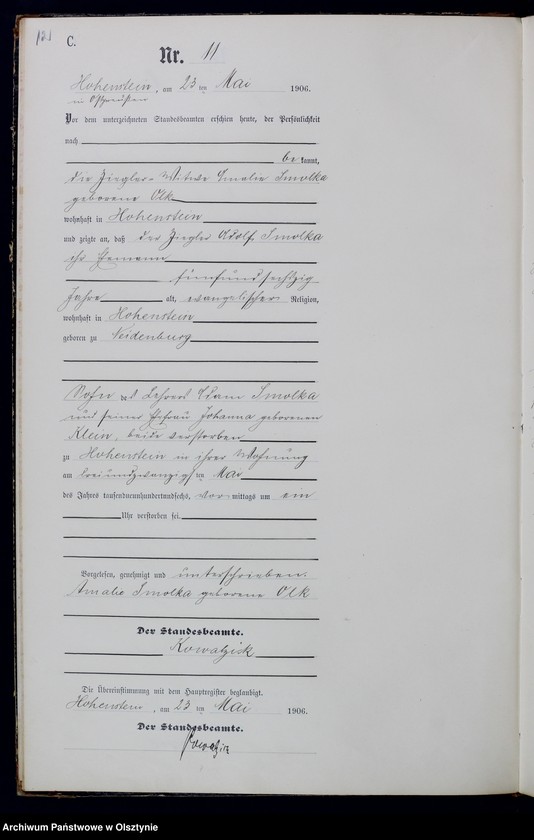 121
C.
Nr. 11
Hohenstein, am 23 ten Mai 1906.
in Ostpreußen
Vor dem unterzeichneten Standesbeamten erschien heute, der Persönlichkeit
nach
be kannt,
die Ziegler-Witwe Amalie Smolka
geborene Olk
wohnhaft in Hohenstein
und zeigte an, daß der Ziegler Adolf Smolka
ihr Ehemann
fünfundsechzig
Jahre alt, evangelischer Religion,
wohnhaft in Hohenstein
geboren zu Neidenburg
Sohn des Lehrers Adam Smolka
und seiner Ehefrau Johanna geborenen
Klein, beide verstorben
zu Hohenstein in ihrer Wohnung
am dreiundzwanzigsten Mai
des Jahres tausendneunhundertundsechs, vor mittags um ein
Uhr verstorben sei.
Vorgelesen, genehmigt und unterschrieben.
Amalie Smolka geborene Olk
Der Standesbeamte.
Kowalzick
Die Übereinstimmung mit dem Hauptregister beglaubigt.
Hohenstein, am 23 ten Mai 1906.
Der Standesbeamte.
Kowalzick
Archiwum Państwowe w Olsztynie